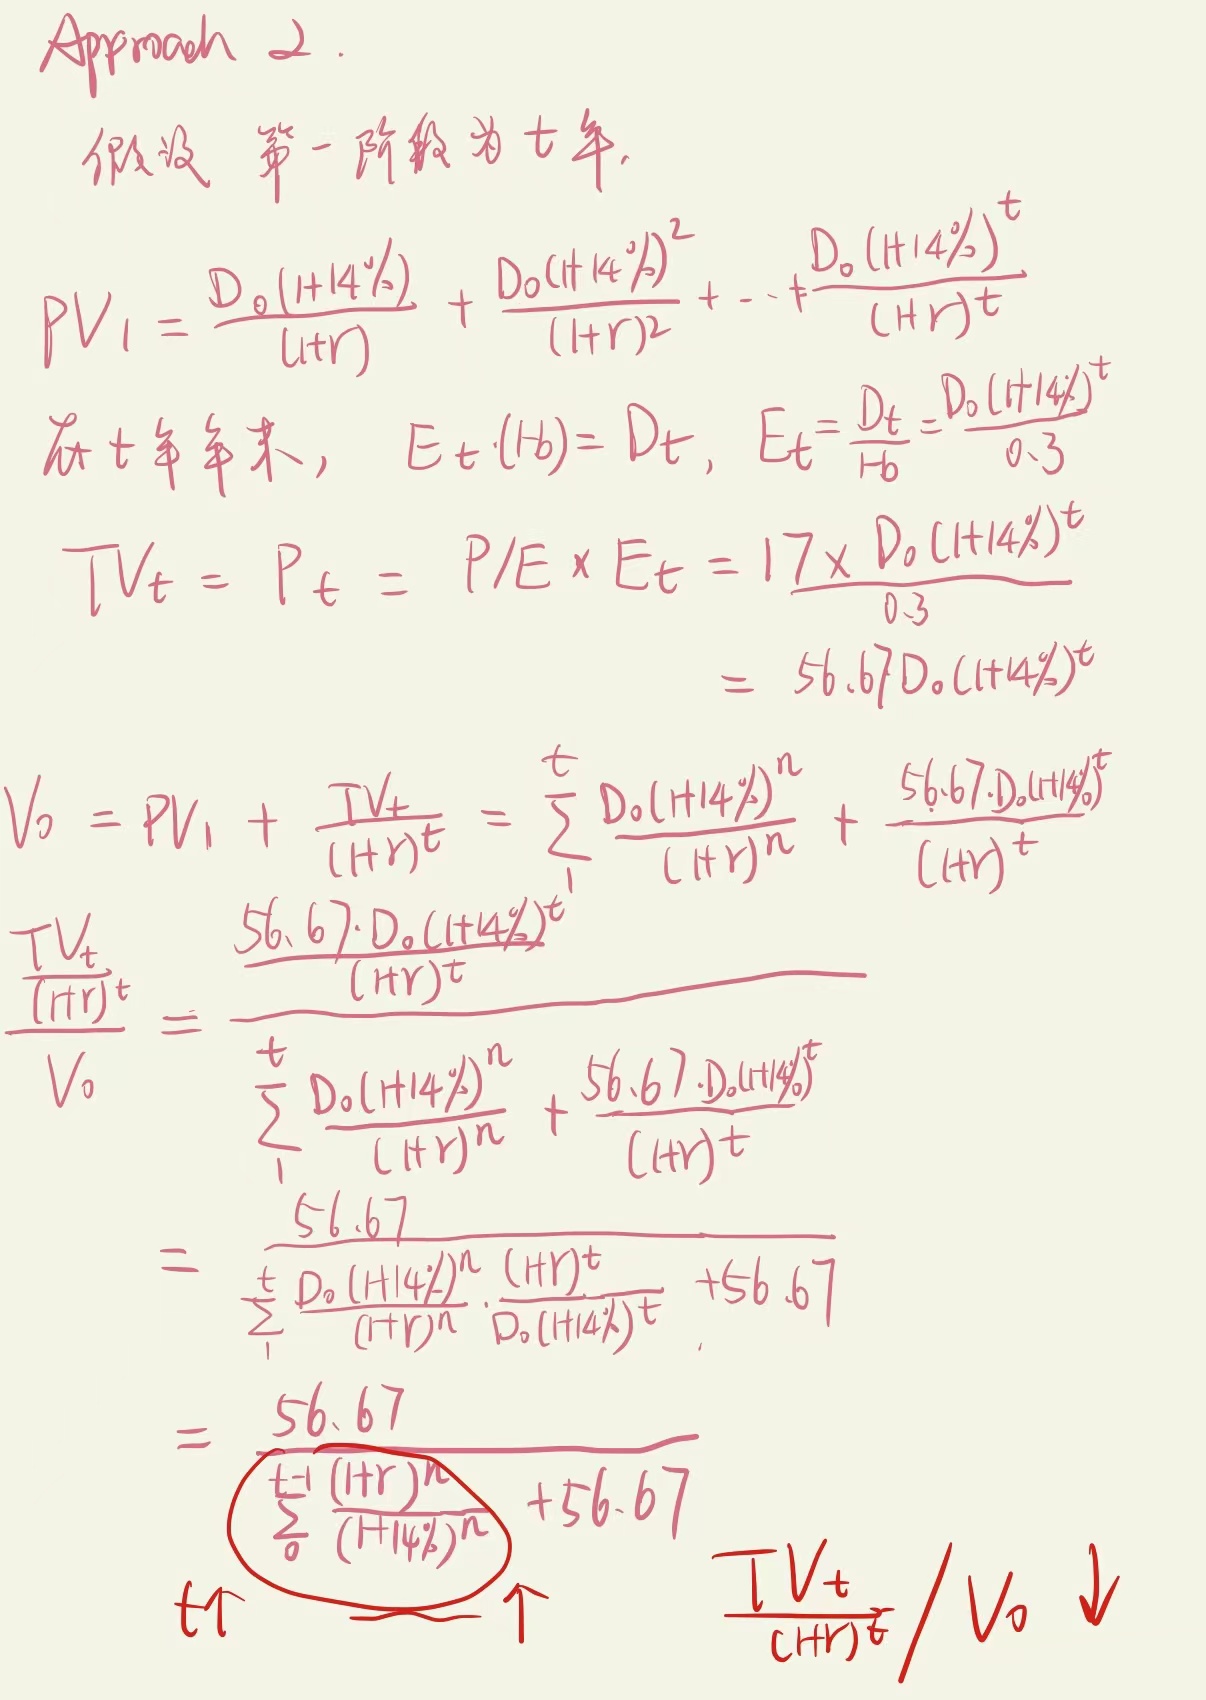 Approach 2.
假设 第一阶段为 t 年.
PV₁ = D₀(1+14%)/(1+r) + D₀(1+14%)²/(1+r)² + ... + D₀(1+14%)^t/(1+r)^t
在 t 年年末, E_t·(1-b) = D_t, E_t = D_t/(1-b) = D₀(1+14%)^t/0.3
TV_t = P_t = P/E × E_t = 17 × D₀(1+14%)^t/0.3
= 56.67 D₀(1+14%)^t
V₀ = PV₁ + TV_t/(1+r)^t = Σ_1^t D₀(1+14%)^n/(1+r)^n + 56.67·D₀(1+14%)^t/(1+r)^t
(TV_t/(1+r)^t)/V₀ = (56.67·D₀(1+14%)^t/(1+r)^t)/(Σ_1^t D₀(1+14%)^n/(1+r)^n + 56.67·D₀(1+14%)^t/(1+r)^t)
= 56.67/(Σ_1^t D₀(1+14%)^n/(1+r)^n · (1+r)^t/D₀(1+14%)^t + 56.67)
= 56.67/(Σ_0^{t-1} (1+r)^n/(1+14%)^n + 56.67)
t↑ ↑ TV_t/(1+r)^t / V₀ ↓